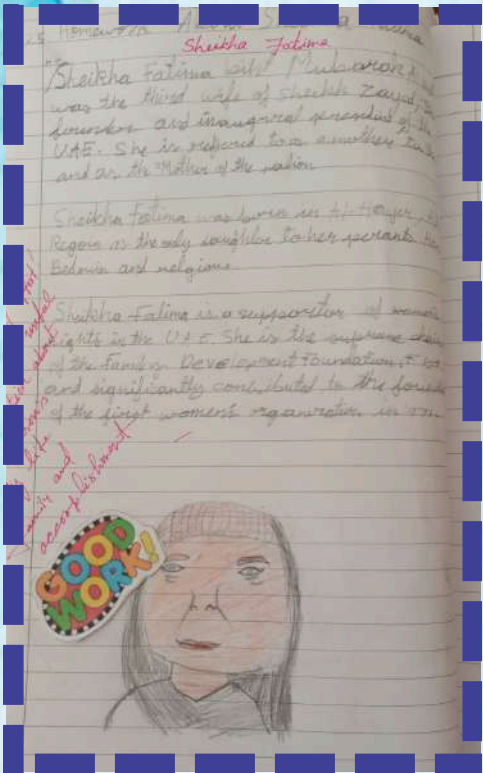 Homework About
Sheikha Fatima
Sheikha Fatima bint Mubarak
was the third wife of Sheikh Zayed,
founder and inaugural president of the
UAE. She is refered to as a mother
and as the "Mother of the nation
Sheikha Fatima was born in Al-Hayer,
Region as the only doughter to her perants.
Bedouin and religious.
Sheikha Fatima is a supportor of women
rights in the UAE. She is the supreme
of the Family Development Foundation,
and significantly contributed to the
of the first women's organization in
useful
about
life
family and
accomplishment
GOOD
WORK!